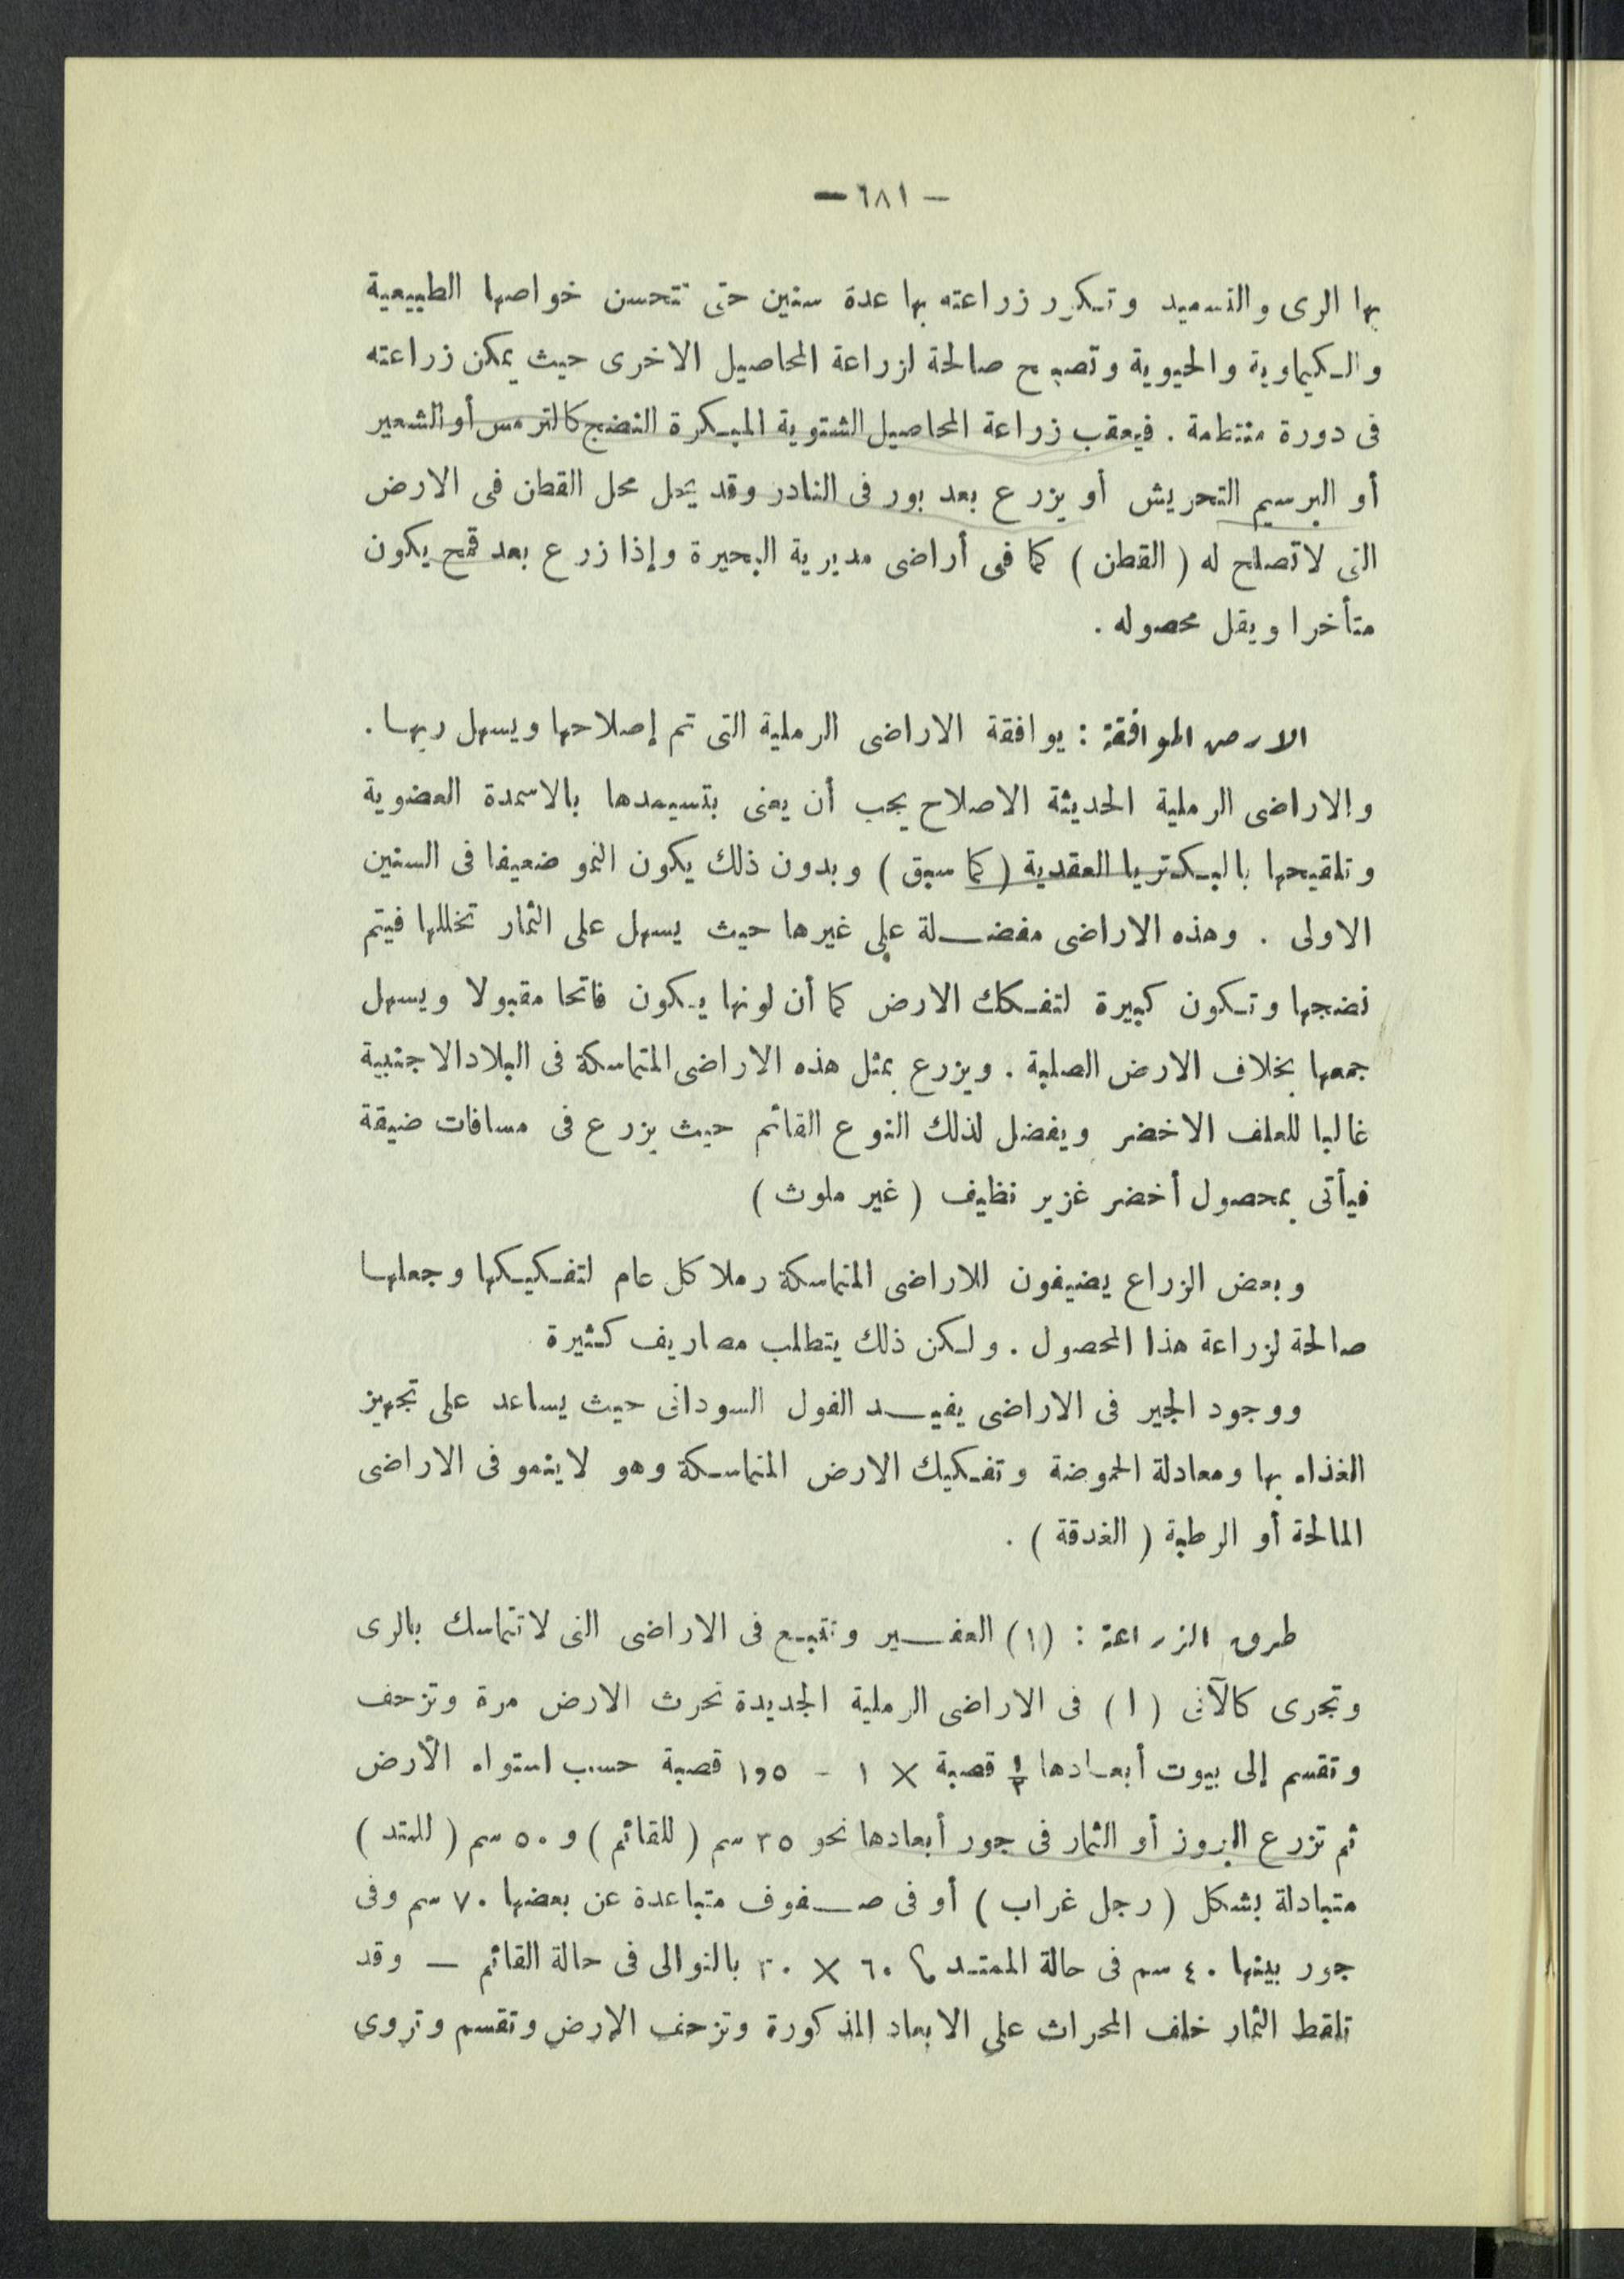 — ٦٨١ —
بها الرى والتسميد وتكرر زراعته بها عدة سنين حتى تتحسن خواصها الطبيعية
والكيماوية والحيوية وتصبح صالحة لزراعة المحاصيل الاخرى حيث يمكن زراعته
فى دورة منتظمة . فيعقب زراعة المحاصيل الشتوية المبكرة النضج كالترمس أو الشعير
أو البرسيم التحريش أو يزرع بعد بور فى النادر وقد يحل محل القطن فى الارض
التى لاتصلح له ( القطن ) كما فى أراضى مديرية البحيرة وإذا زرع بعد قمح يكون
متأخرا ويقل محصوله .
الارض الموافقة : يوافقة الاراضى الرملية التى تم إصلاحها ويسهل ريها .
والاراضى الرملية الحديثة الاصلاح يجب أن يعنى بتسيمدها بالاسمدة العضوية
وتلقيحها بالبكتريا العقدية ( كما سبق ) وبدون ذلك يكون النمو ضعيفا فى السنين
الاولى . وهذه الاراضى مفضلة على غيرها حيث يسهل على الثمار تخللها فيتم
نضجها وتكون كبيرة لتفكك الارض كما أن لونها يكون فاتحا مقبولا ويسهل
جمعها بخلاف الارض الصلبة . ويزرع بمثل هذه الاراضى المتماسكة فى البلاد الاجنبية
غالبا للعلف الاخضر ويفضل لذلك النوع القائم حيث يزرع فى مسافات ضيقة
فيأتى بمحصول أخضر غزير نظيف ( غير ملوث )
وبعض الزراع يضيفون للاراضى المتماسكة رملا كل عام لتفكيكها وجعلها
صالحة لزراعة هذا المحصول . ولكن ذلك يتطلب مصاريف كثيرة
ووجود الجير فى الاراضى يفيد الفول السودانى حيث يساعد على تجهيز
الغذاء بها ومعادلة الحموضة وتفكيك الارض المتماسكة وهو لاينمو فى الاراضى
المالحة أو الرطبة ( الغدقة ) .
طرق الزراعة : (١) العفير وتتبع فى الاراضى التى لاتتماسك بالرى
وتجرى كالآتى ( ا ) فى الاراضى الرملية الجديدة تحرث الارض مرة وتزحف
وتقسم إلى بيوت أبعادها ½ قصبة × ١ - ١٫٥ قصبة حسب استواء الأرض
ثم تزرع البزوز أو الثمار فى جور أبعادها نحو ٢٥ سم ( للقائم ) و ٥٠ سم ( للمتد )
متبادلة بشكل ( رجل غراب ) أو فى صفوف متباعدة عن بعضها ٧٠ سم وفى
جور بينها ٤٠ سم فى حالة الممتد ، ٦٠ × ٣٠ بالتوالى فى حالة القائم — وقد
تلقط الثمار خلف المحراث على الابعاد المذكورة وتزحف الارض وتقسم وتروى